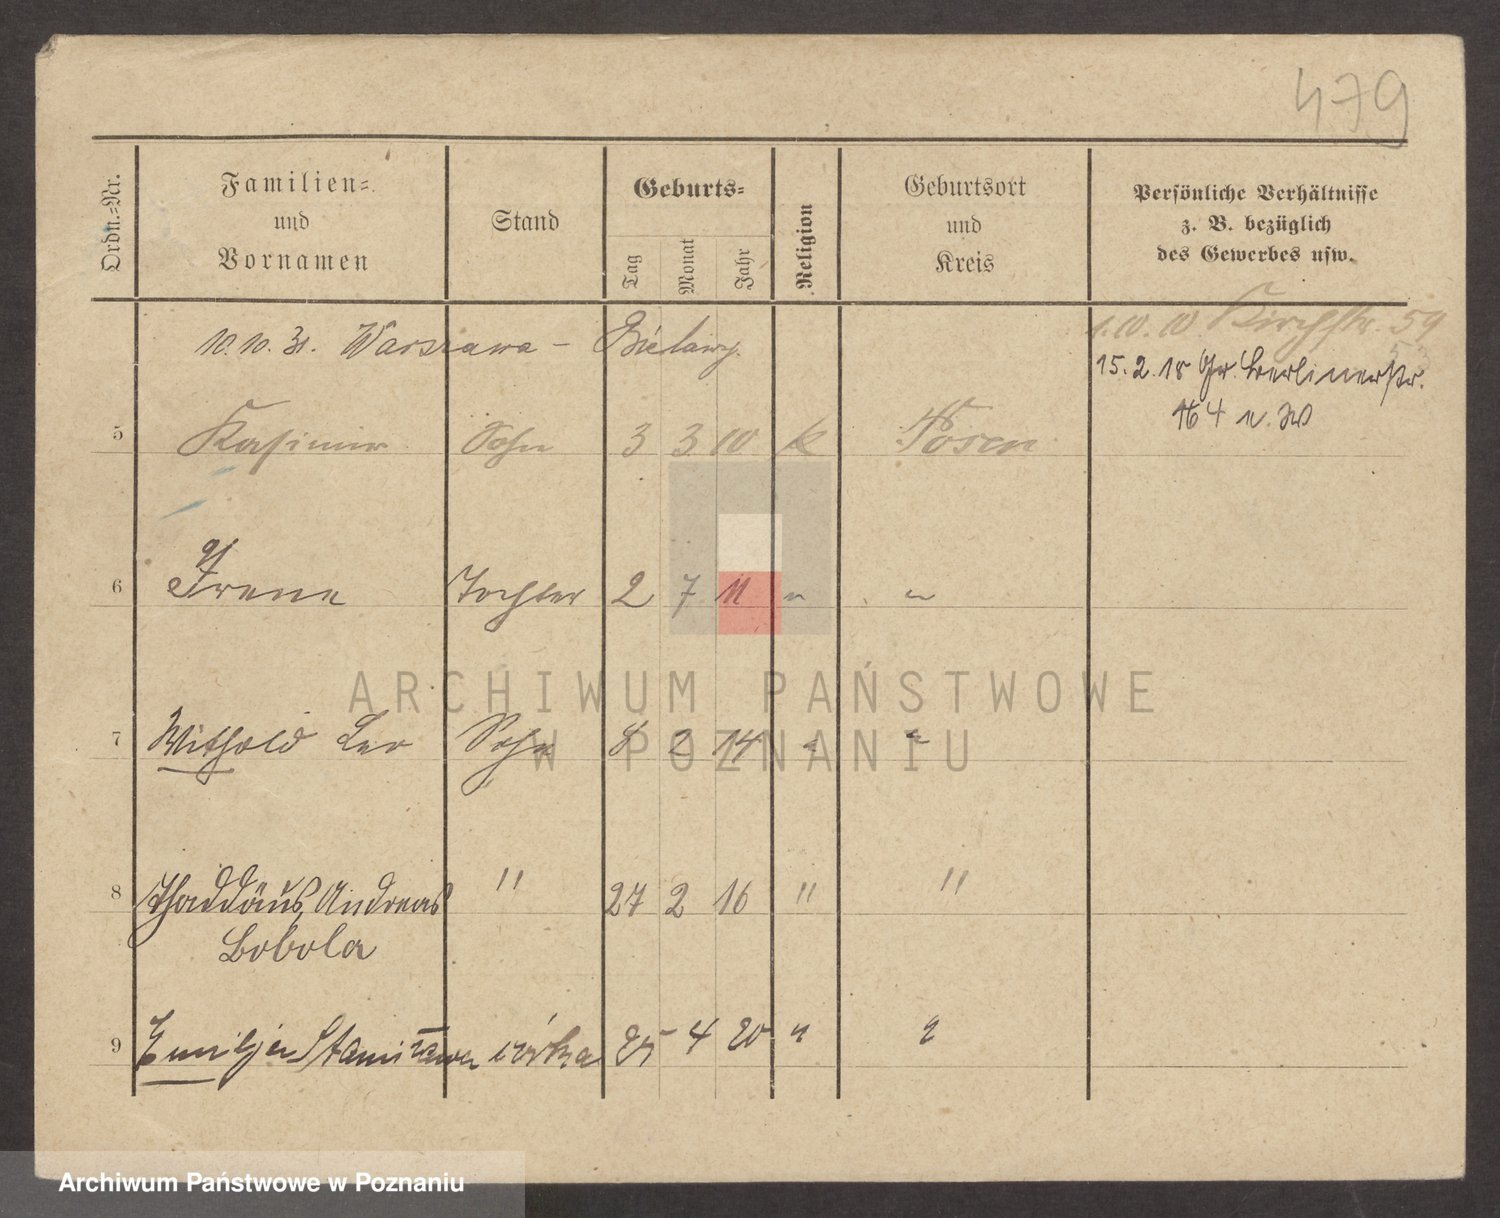 479
Ordn.=Nr.
Familien=
und
Vornamen
Stand
Geburts=
Tag
Monat
Jahr
Religion
Geburtsort
und
Kreis
Persönliche Verhältnisse
z. B. bezüglich
des Gewerbes usw.
10.10.31. Warszawa – Bielany.
1.10.10 Kirchstr. 59
15.2.18 Gr. Berlinerstr.
5 Kasimir Sohn 3 3 10 k Posen
6 Irene Tochter 2 7 11 " "
7 Withold Leo Sohn 8 2 14 " "
8 Thaddäus, Andreas " 27 2 16 " "
Bobola
9 Emilja Stanisława córka 25 4 20 " "
ARCHIWUM PAŃSTWOWE
W POZNANIU
Archiwum Państwowe w Poznaniu